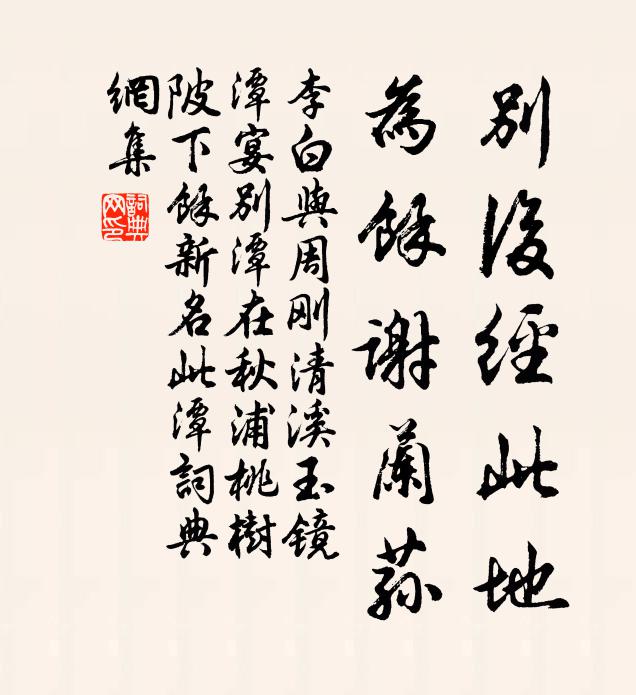 別後經此地
為餘謝蘭蓀
李白與周剛清溪玉鏡
潭宴別潭在秋浦桃樹
陂下餘新名此潭詞典
網集
詞典
网印